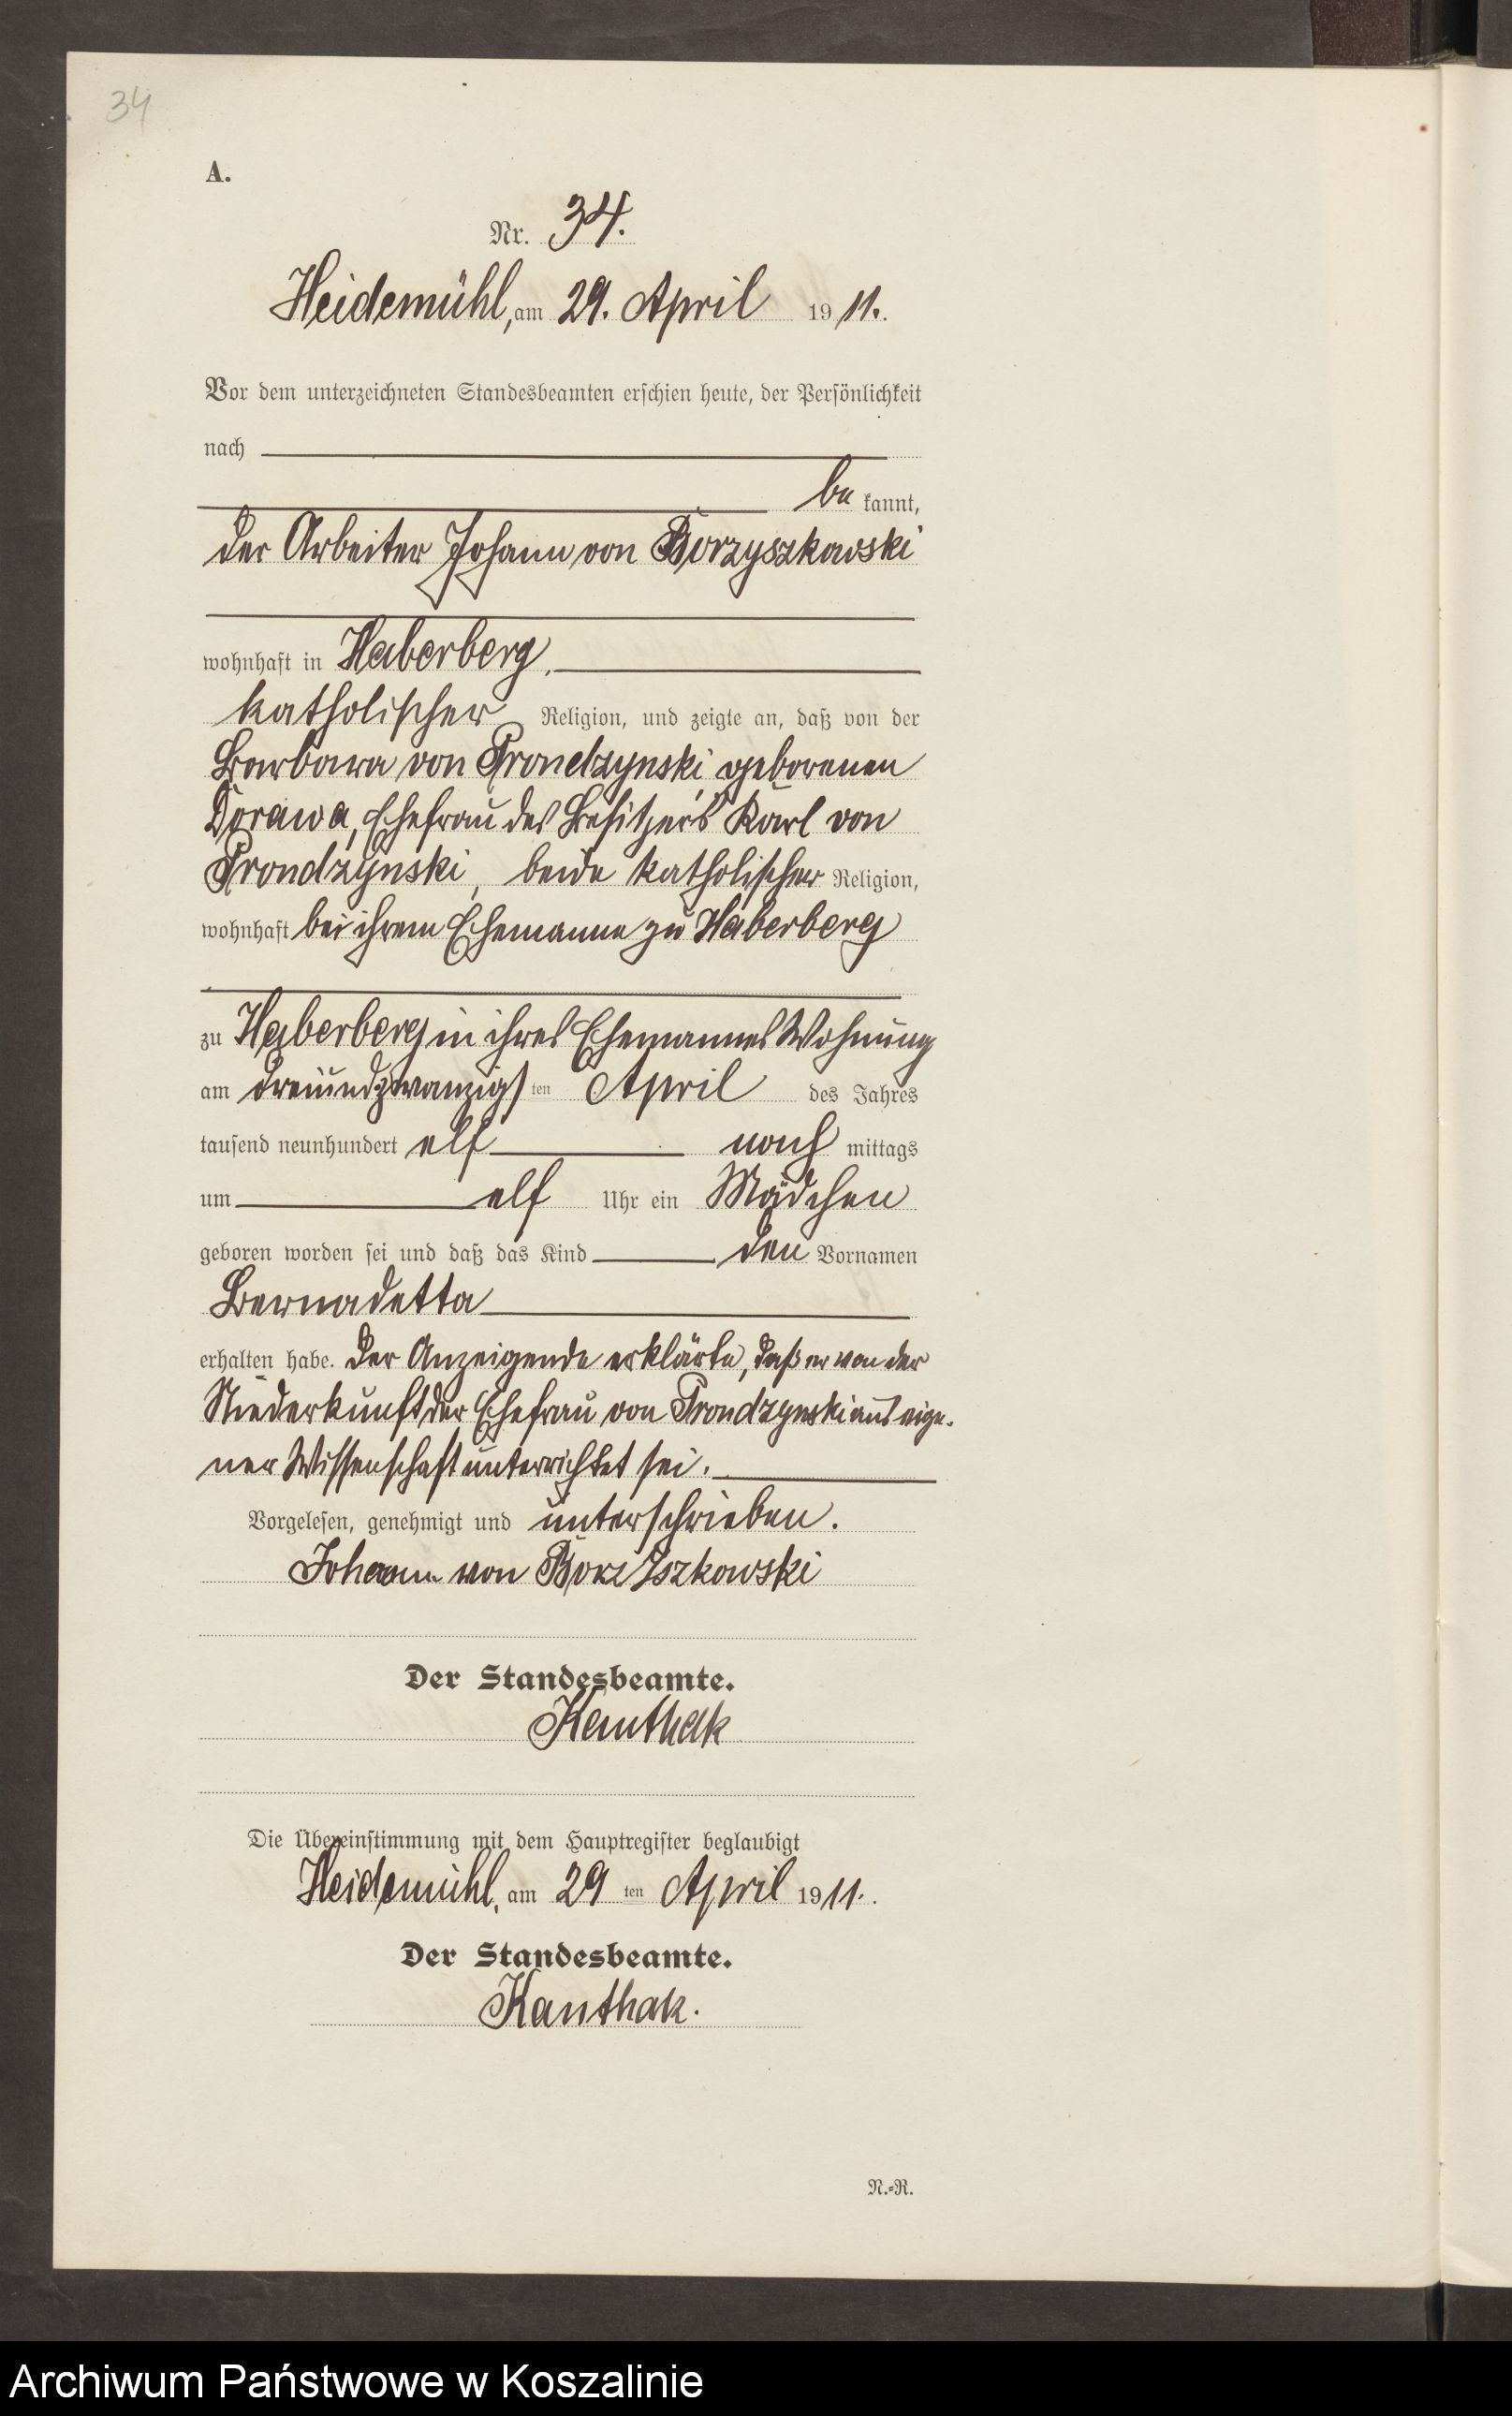 34
A.
Nr. 34.
Heidemühl, am 29. April 1911.
Vor dem unterzeichneten Standesbeamten erschien heute, der Persönlichkeit
nach
be kannt,
der Arbeiter Johann von Borzyszkowski
wohnhaft in Haberberg,
katholischer Religion, und zeigte an, daß von der
Barbara von Prondzynski geborenen
Dorawa, Ehefrau des Besitzers Karl von
Prondzynski, beide katholischer Religion,
wohnhaft bei ihrem Ehemanne zu Haberberg
zu Haberberg in ihres Ehemannes Wohnung
am dreiundzwanzigsten April des Jahres
tausend neunhundert elf nach mittags
um elf Uhr ein Mädchen
geboren worden sei und daß das Kind den Vornamen
Bernadetta
erhalten habe. Der Anzeigende erklärte, daß er von der
Niederkunft der Ehefrau von Prondzynski aus eige-
ner Wissenschaft unterrichtet sei.
Vorgelesen, genehmigt und unterschrieben.
Johann von Borzyszkowski
Der Standesbeamte.
Kanthak
Die Übereinstimmung mit dem Hauptregister beglaubigt
Heidemühl, am 29 ten April 1911.
Der Standesbeamte.
Kanthak.
N.-R.
Archiwum Państwowe w Koszalinie